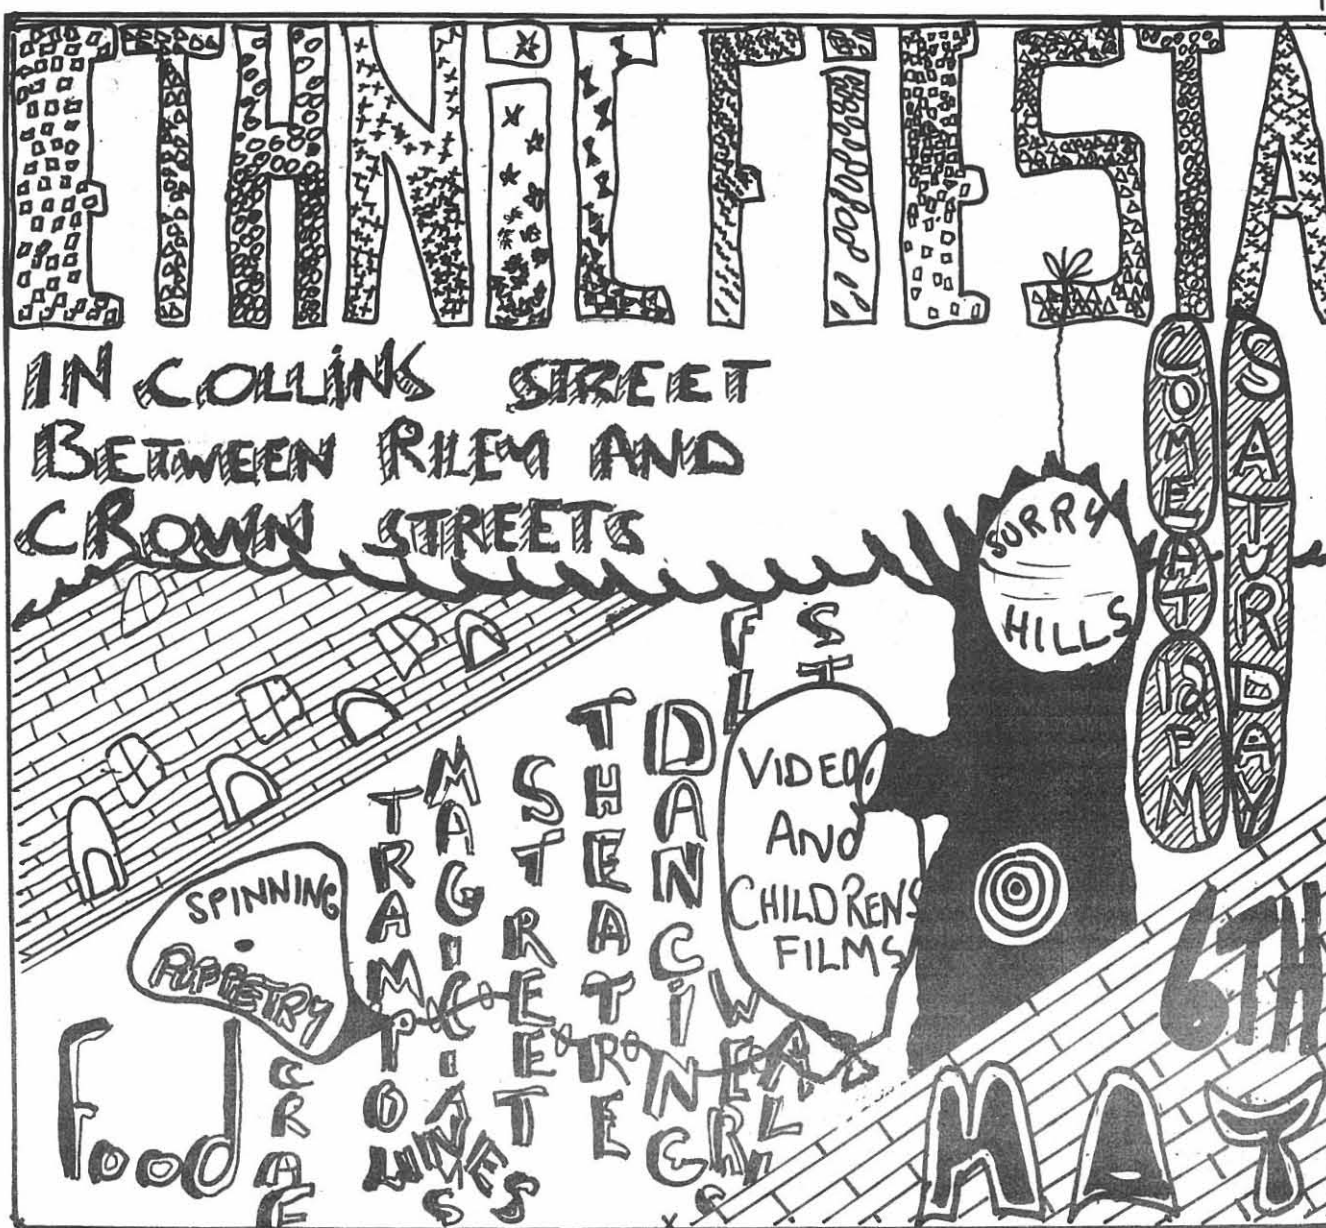 ETHNiC FiESTA
IN COLLiNS STREET
BETWEEN RILEY AND
CROWN STREETS
SURRY
HILLS
COME AT 12PM
SATURDAY
6TH
MAY
VIDEO
AND
CHILDRENS
FILMS
SPINNING
PUPPETRY
Food
TRAMPOLINES
MAGICIANS
STREET
THEATRE
DANCiNG